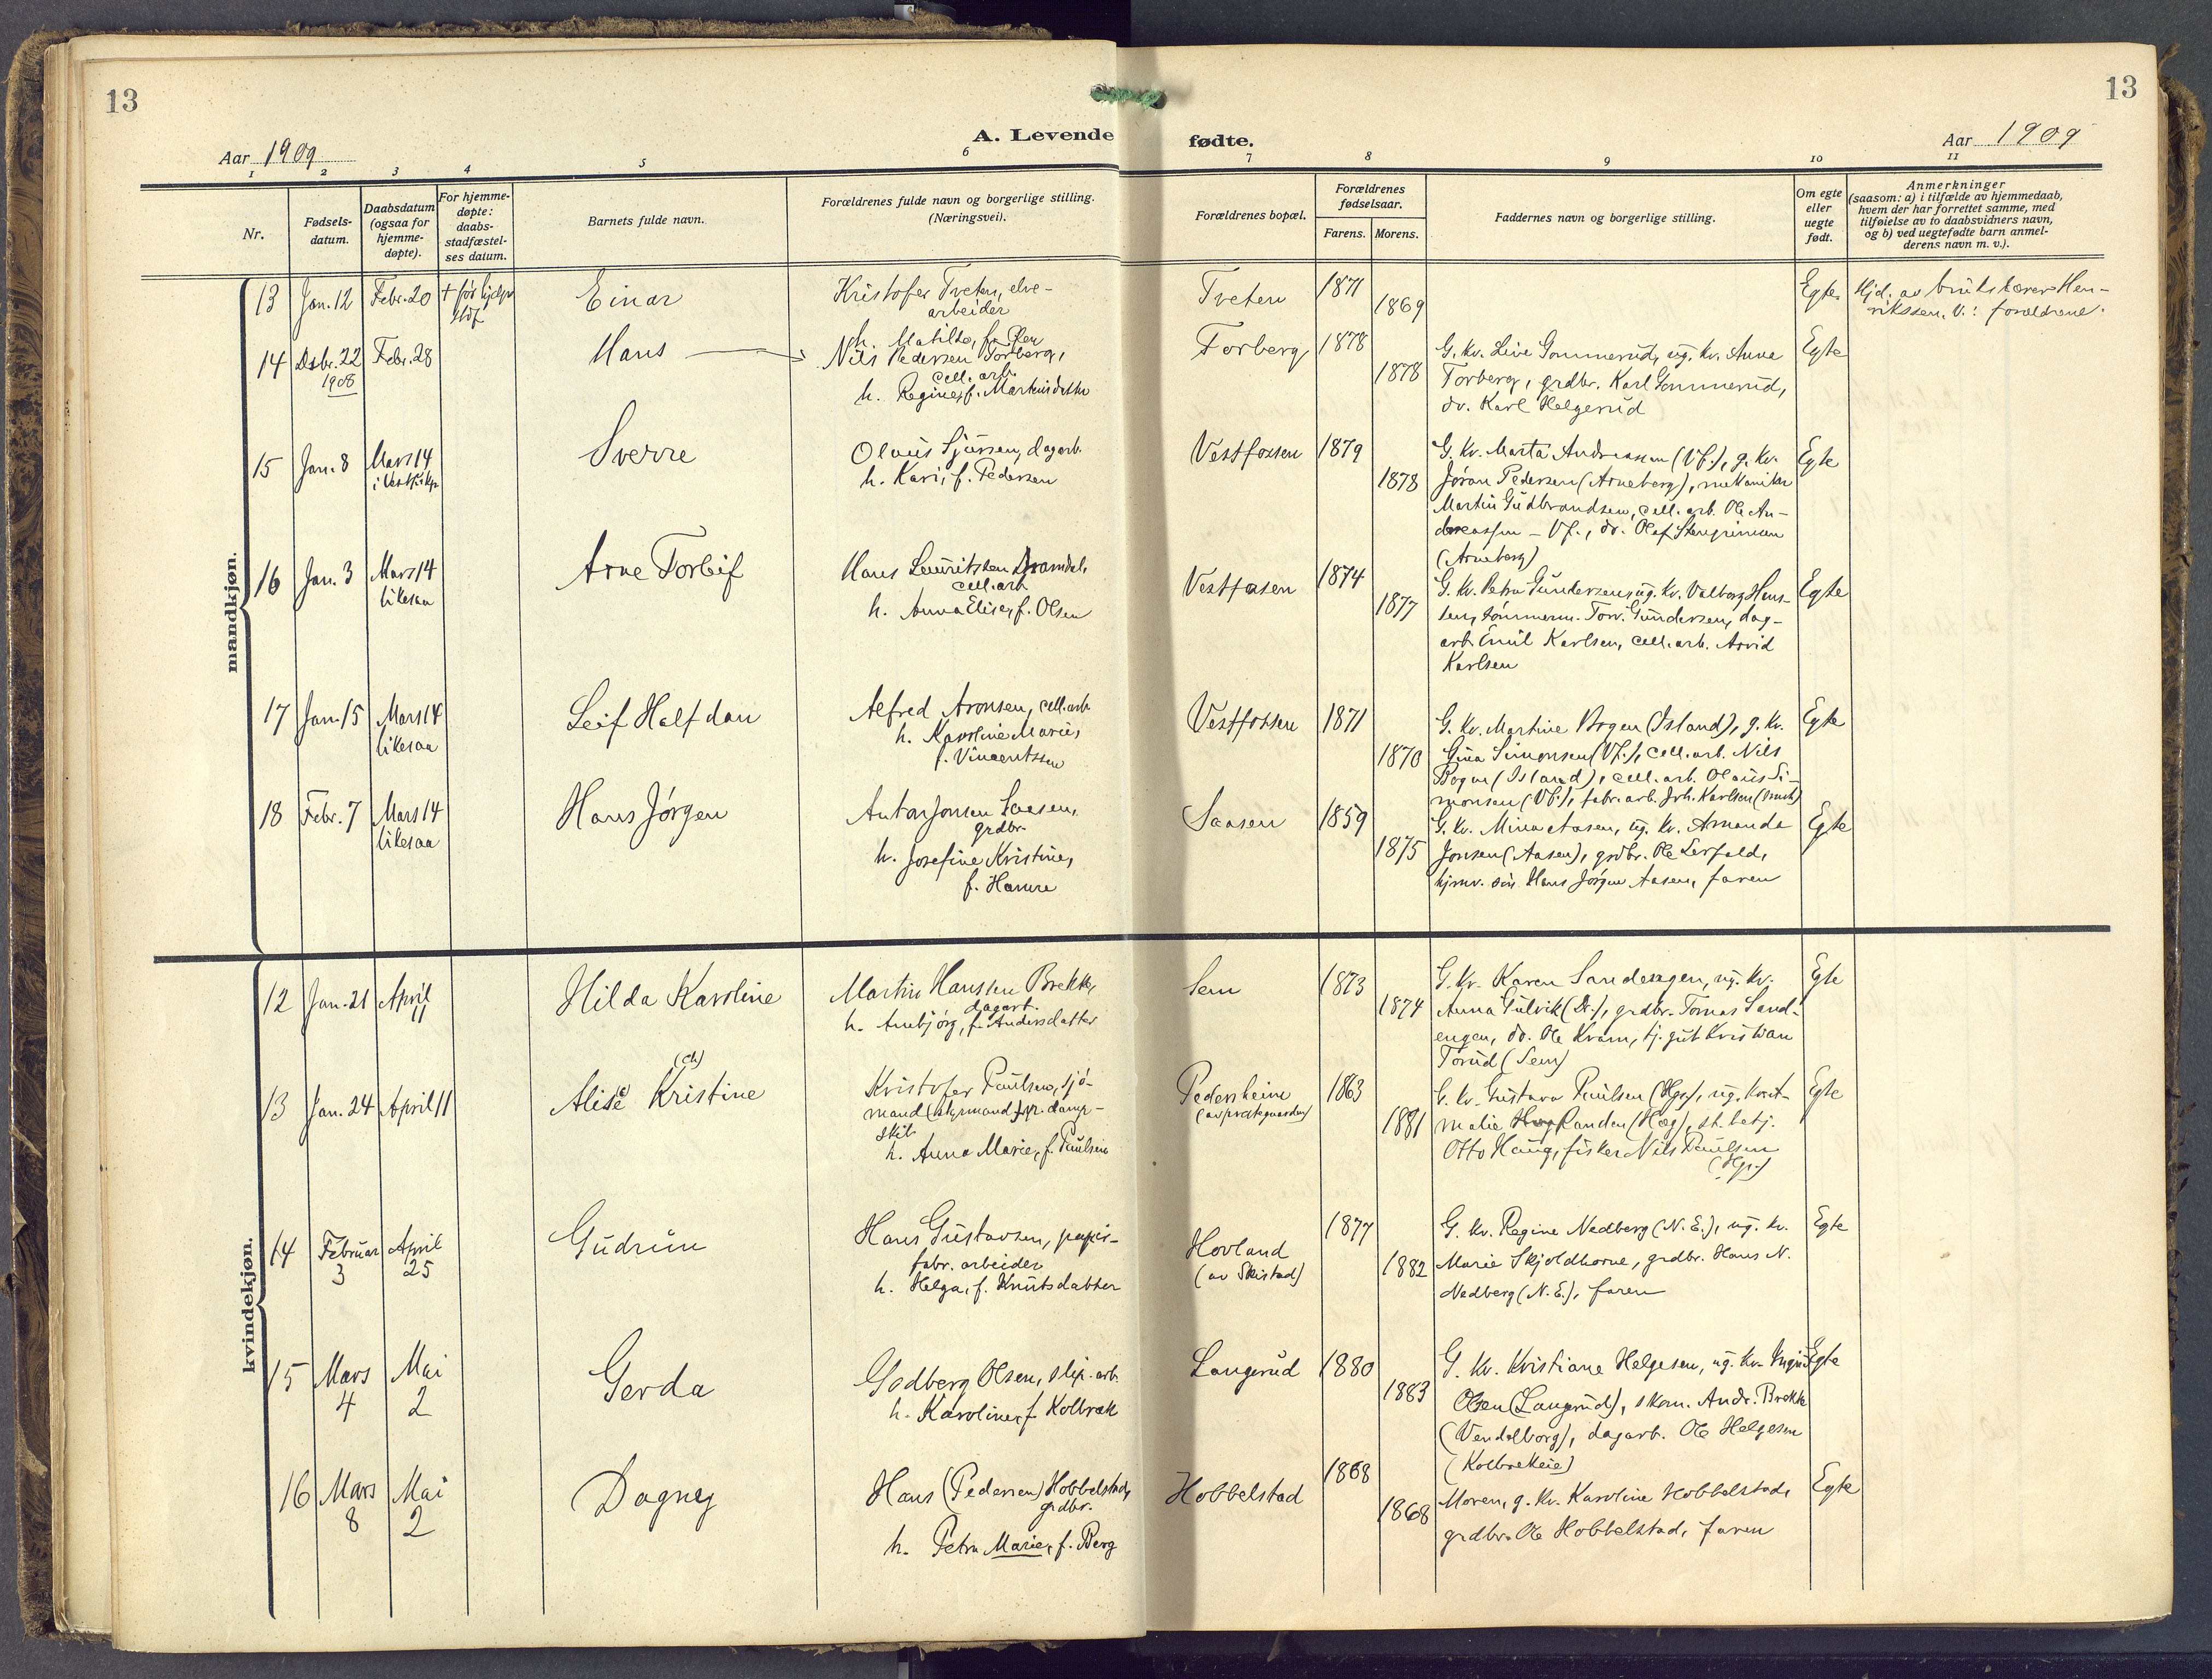 13
13
Aar 1909
A. Levende fødte.
Aar 1909
1 2 3 4 5 6 7 8 9 10 11
Nr.
Fødsels-
datum.
Daabsdatum
(ogsaa for
hjemme-
døpte).
For hjemme-
døpte:
daabs-
stadfæstel-
ses datum.
Barnets fulde navn.
Forældrenes fulde navn og borgerlige stilling.
(Næringsvei).
Forældrenes bopæl.
Forældrenes
fødselsaar.
Farens. Morens.
Faddernes navn og borgerlige stilling.
Om egte
eller
uegte
født.
Anmerkninger
(saasom: a) i tilfælde av hjemmedaab,
hvem der har forrettet samme, med
tilføielse av to daabsvidners navn,
og b) ved uegtefødte barn anmel-
derens navn m. v.).
mandkjøn.
13 Jan. 12 Febr. 20 + før
Einar
Kristofer Tveten, elve-
arbeider
h. Matilde, f.
Tveten
1871
1869
Egte
Hjd. av brukseier Hen-
rikssen. V.: forældrene.
14 Dsbr. 22 Febr. 28
1908
Hans
Nils Pedersen Torberg,
cell. arb.
h. Regine, f. Martinsdatter
Torberg
1878
1878
G. kv. Live Gommerud, ug. kv. Anna
Torberg, grdbr. Karl Gommerud,
do. Karl Helgerud
Egte
15 Jan. 8 Mars 14
Sverre
Olaus Sjursen, dagarb.
h. Kari, f. Pedersen
Vestfossen
1879
1878
G. kv. Marta Andreassen (Vf.), g. kv.
Jøran Pedersen (Arneberg), mekaniker
Martin Gudbrandsen, cell. arb. Ole An-
dreassen – Vf., do. Olaf
(Arneberg)
Egte
16 Jan. 3 Mars 14
likesaa
Arne Torleif
Hans Lauritssen Dramdal,
cell. arb.
h. Anna Elise, f. Olsen
Vestfossen
1874
1877
G. kv. Petra Gundersen, ug. kv. Valborg Han-
sen, tømmerm. Torv. Gundersen, dag-
arb. Emil Karlsen, cell. arb. Arvid
Karlsen
Egte
17 Jan. 15 Mars 14
likesaa
Leif Halfdan
Alfred Aronsen, cell. arb.
h. Karoline Marie,
f. Vincentssen
Vestfossen
1871
1870
G. kv. Martine Bogen (Island), g. kv.
Gina Simonsen (Vf.), cell. arb. Nils
Bogen (Island), cell. arb. Olaus Si-
monsen (Vf.), fabr. arb. Joh. Karlsen
Egte
18 Febr. 7 Mars 14
likesaa
Hans Jørgen
Anton Jonsen Saasen,
grdbr.
h. Josefine Kristine,
f. Hamre
Saasen
1859
1875
G. kv. Mina Aasen, ug. kv. Amanda
Jonsen (Aasen), grdbr. Ole Lerfald,
hjmv. søn Hans Jørgen Aasen, faren
Egte
kvindekjøn.
12 Jan. 21 April
11
Hilda Karoline
Martin Hanssen Brekke,
dagarb.
h. Annbjørg, f. Andersdatter
Sem
1873
1874
G. kv. Karen Sandengen, ug. kv.
Anna Gulvik, grdbr. Tomas Sand-
engen, do. Ole Kvam, tj. gut Kristian
Torud (Sem)
Egte
13 Jan. 24 April 11
(ch)
Alise Kristine
Kristofer Paulsen, sjø-
mand (styrmand paa damp-
skib
h. Anna Marie, f. Paulsen
Pedersheim
(av prestegaarden)
1863
1881
G. kv. Gustava Paulsen (Hgs.), ug. kont-
Randen (Hæg), st. betj.
Otto Haug, fisker Nils Paulsen
(Hgs.)
Egte
14 Februar April
3 25
Gudrun
Hans Gustavsen, papir-
fabr. arbeider
h. Helga, f. Knutsdatter
Hovland
(av Skistad)
1877
1882
G. kv. Regine Nedberg (N. E.), ug. kv.
Marie Skjoldhorne, grdbr. Hans N.
Nedberg (N. E.), faren
Egte
15 Mars Mai
4 2
Gerda
Godberg Olsen, slip. arb.
h. Karoline, f. Kolbræk
Langerud
1880
1883
G. kv. Kristiane Helgesen, ug. kv. Ingrid
Olsen (Langerud), skom. Andr. Brekke
(Vendelborg), dagarb. Ole Helgesen
(Kolbrekeie)
Egte
16 Mars Mai
8 2
Dagny
Hans (Pedersen) Hobbelstad,
grdbr.
h. Petra Marie, f. Berg
Hobbelstad
1868
1868
Moren, g. kv. Karoline Hobbelstad,
grdbr. Ole Hobbelstad, faren
Egte